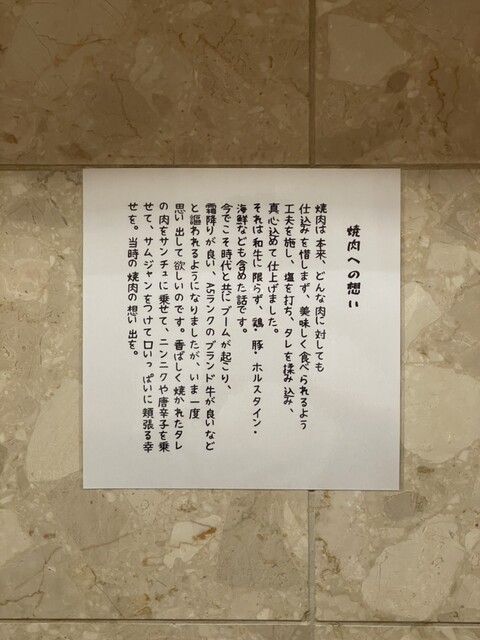 焼肉への想い
焼肉は本来、どんな肉に対しても
仕込みを惜しまず、美味しく食べられるよう
工夫を施し、塩を打ち、タレを揉み込み、
真心込めて仕上げました。
それは和牛に限らず、鶏・豚・ホルスタイン・
海鮮なども含めた話です。
今でこそ時代と共にブームが起こり、
霜降りが良い、A5ランクのブランド牛が良いなど
と謳われるようになりましたが、いま一度
思い出して欲しいのです。香ばしく焼かれたタレ
の肉をサンチュに乗せて、ニンニクや唐辛子を乗
せて、サムジャンをつけて口いっぱいに頬張る幸
せを。当時の焼肉の想い出を。